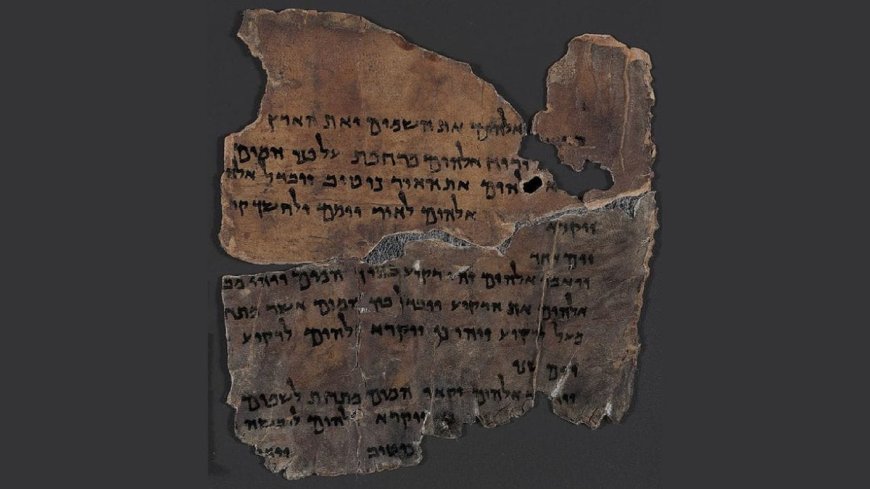 אלהים את השמים ואת הארץ
ורוח אלהים מרחפת על פני המים
א להים את האור כי טוב ויבדל אלה
אלהים לאור יומם ולחשך ק
ויקרא
יום אחד
ויאמר אלהים יהי רקיע בתוך המים ויהי מב
אלהים את הרקיע ויבדל בין המים אשר מתח
מעל לרקיע ויהי כן ויקרא להים לרקיע
יום שני
אלהים יקאו המים מתחת לשמים
ויקרא להים ליבשה
כי טוב